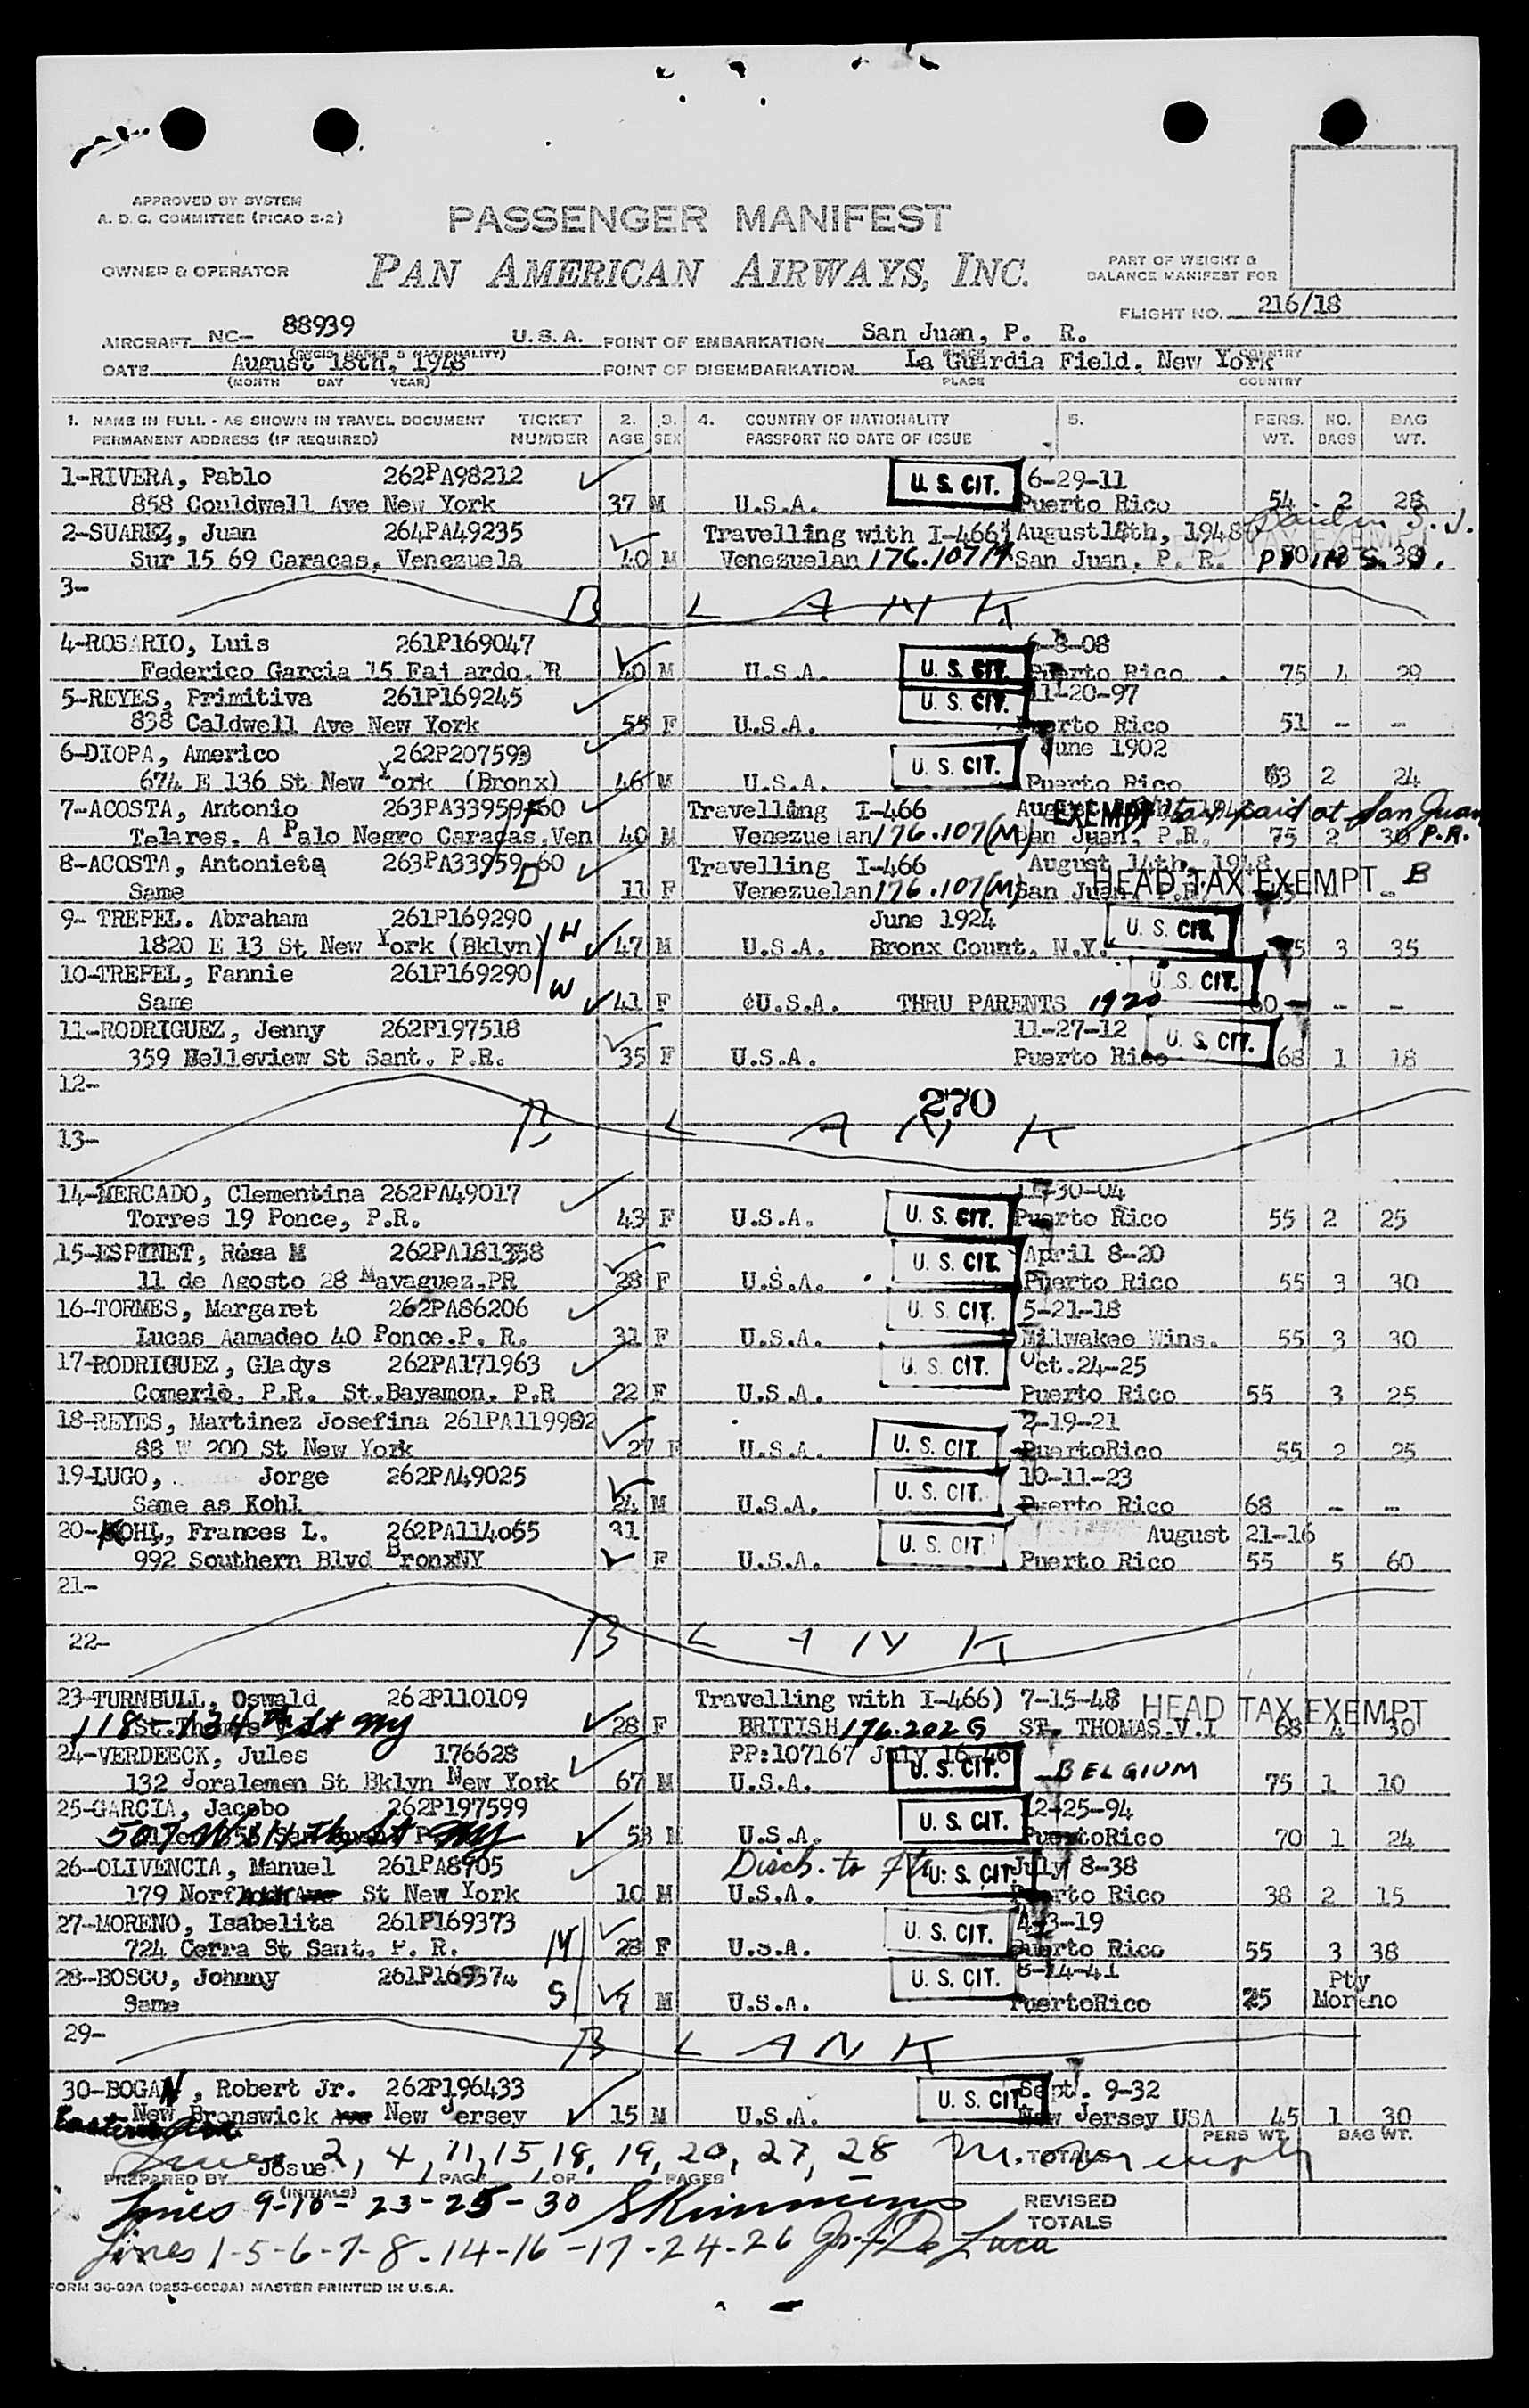 APPROVED BY SYSTEM
A. D. C. COMMITTEE (PICAO S-2)
PASSENGER MANIFEST
OWNER & OPERATOR
PAN AMERICAN AIRWAYS, INC.
PART OF WEIGHT &
BALANCE MANIFEST FOR
FLIGHT NO. 216/18
AIRCRAFT NC- 88939 U.S.A. POINT OF EMBARKATION San Juan, P. R.
DATE August 18th, 1948 POINT OF DISEMBARKATION La Guardia Field, New York
(MONTH DAY YEAR) PLACE COUNTRY
1. NAME IN FULL - AS SHOWN IN TRAVEL DOCUMENT TICKET 2. 3. 4. COUNTRY OF NATIONALITY 5. PERS. NO. BAG
PERMANENT ADDRESS (IF REQUIRED) NUMBER AGE SEX PASSPORT NO DATE OF ISSUE WT. BAGS WT.
1-RIVERA, Pablo 262PA98212 U.S. CIT. 6-29-11
858 Couldwell Ave New York 37 M U.S.A. Puerto Rico 54 2 28
2-SUAREZ, Juan 264PA49235 Travelling with I-466 August 14th, 1948
Sur 15 69 Caracas, Venezuela 40 M Venezuelan 176.107M San Juan, P. R. 38
HEAD TAX EXEMPT
3- BLANK
4-ROSARIO, Luis 261P169047 6-8-08
Federico Garcia 15 Fajardo, PR 40 M U.S.A. U.S. CIT. Puerto Rico 75 4 29
5-REYES, Primitiva 261P169245 U.S. CIT. 11-20-97
838 Caldwell Ave New York 55 F U.S.A. Puerto Rico 51 - -
6-DIOPA, Americo 262P207599 June 1902
674 E 136 St New York (Bronx) 46 M U.S.A. U.S. CIT. Puerto Rico 63 2 24
7-ACOSTA, Antonio 263PA33959-60 Travelling I-466 EXEMPT tax paid at San Juan
Telares. A Palo Negro Caracas, Ven 40 M Venezuelan 176.107(M) San Juan, P.R. 75 2 30 P.R.
8-ACOSTA, Antonieta 263PA33959-60 Travelling I-466 August 14th, 1948
Same 11 F Venezuelan 176.107(M) San Juan, P.R. HEAD TAX EXEMPT - B
9- TREPEL. Abraham 261P169290 H June 1924 U.S. CIT.
1820 E 13 St New York (Bklyn) 47 M U.S.A. Bronx Count, N.Y. 75 3 35
10-TREPEL, Fannie 261P169290 W U.S. CIT.
Same 41 F ¢U.S.A. THRU PARENTS 1920 60 - -
11-RODRIGUEZ, Jenny 262P197518 11-27-12 U.S. CIT.
359 Belleview St Sant. P.R. 35 F U.S.A. Puerto Rico 68 1 18
12- 270
13- BLANK
14-MERCADO, Clementina 262PA49017 11-30-04
Torres 19 Ponce, P.R. 43 F U.S.A. U.S. CIT. Puerto Rico 55 2 25
15-ESPINET, Rosa M 262PA181358 U.S. CIT. April 8-20
11 de Agosto 28 Mayaguez.PR 28 F U.S.A. Puerto Rico 55 3 30
16-TORMES, Margaret 262PA86206 U.S. CIT. 5-21-18
Lucas Aamadeo 40 Ponce.P. R. 31 F U.S.A. Milwakee Wins. 55 3 30
17-RODRIGUEZ, Gladys 262PA171963 U.S. CIT. Oct.24-25
Comerio, P.R. St.Bayamon. P.R 22 F U.S.A. Puerto Rico 55 3 25
18-REYES, Martinez Josefina 261PA119992 2-19-21
88 W 200 St New York 27 F U.S.A. U.S. CIT. PuertoRico 55 2 25
19-LUGO, Jorge 262PA49025 10-11-23
Same as Kohl 24 M U.S.A. U.S. CIT. Puerto Rico 68 - -
20-KOHL, Frances L. 262PA114065 31 August 21-16
992 Southern Blvd BronxNY F U.S.A. U.S. CIT. Puerto Rico 55 5 60
21-
22- BLANK
23-TURNBULL, Oswald 262P110109 Travelling with I-466) 7-15-48 HEAD TAX EXEMPT
118-134th St NY 28 F BRITISH 176.202G ST. THOMAS.V.I 68 4 30
24-VERDEECK, Jules 176628 PP:107167 July 16-46
132 Joralemen St Bklyn New York 67 M U.S.A. U.S. CIT. -BELGIUM 75 1 10
25-GARCIA, Jacobo 262P197599 12-25-94
53 M U.S.A. U.S. CIT. PuertoRico 70 1 24
26-OLIVENCIA, Manuel 261PA8905 Disch. to U.S. CIT. July 8-38
179 Norfolk St New York 10 M U.S.A. Puerto Rico 38 2 15
27-MORENO, Isabelita 261P169373 M 4-3-19
724 Cerra St Sant. P. R. 28 F U.S.A. U.S. CIT. Puerto Rico 55 3 38
28-BOSCO, Johnny 261P169374 U.S. CIT. 8-14-41 Pty
Same S 7 M U.S.A. PuertoRico 25 Moreno
29- BLANK
30-BOGAN, Robert Jr. 262P196433 U.S. CIT. Sept. 9-32
New Bronswick Ave New Jersey 15 M U.S.A. New Jersey USA 45 1 30
Eastern Ave
PERS WT. BAG WT.
Lines 2, 4, 11, 15, 18, 19, 20, 27, 28
PREPARED BY Josue PAGE OF PAGES TOTALS
(INITIALS)
Lines 9-10-23-25-30 SKimmins
REVISED
TOTALS
Lines 1-5-6-7-8-14-16-17-24-26 De Luca
FORM 36-09A MASTER PRINTED IN U.S.A.